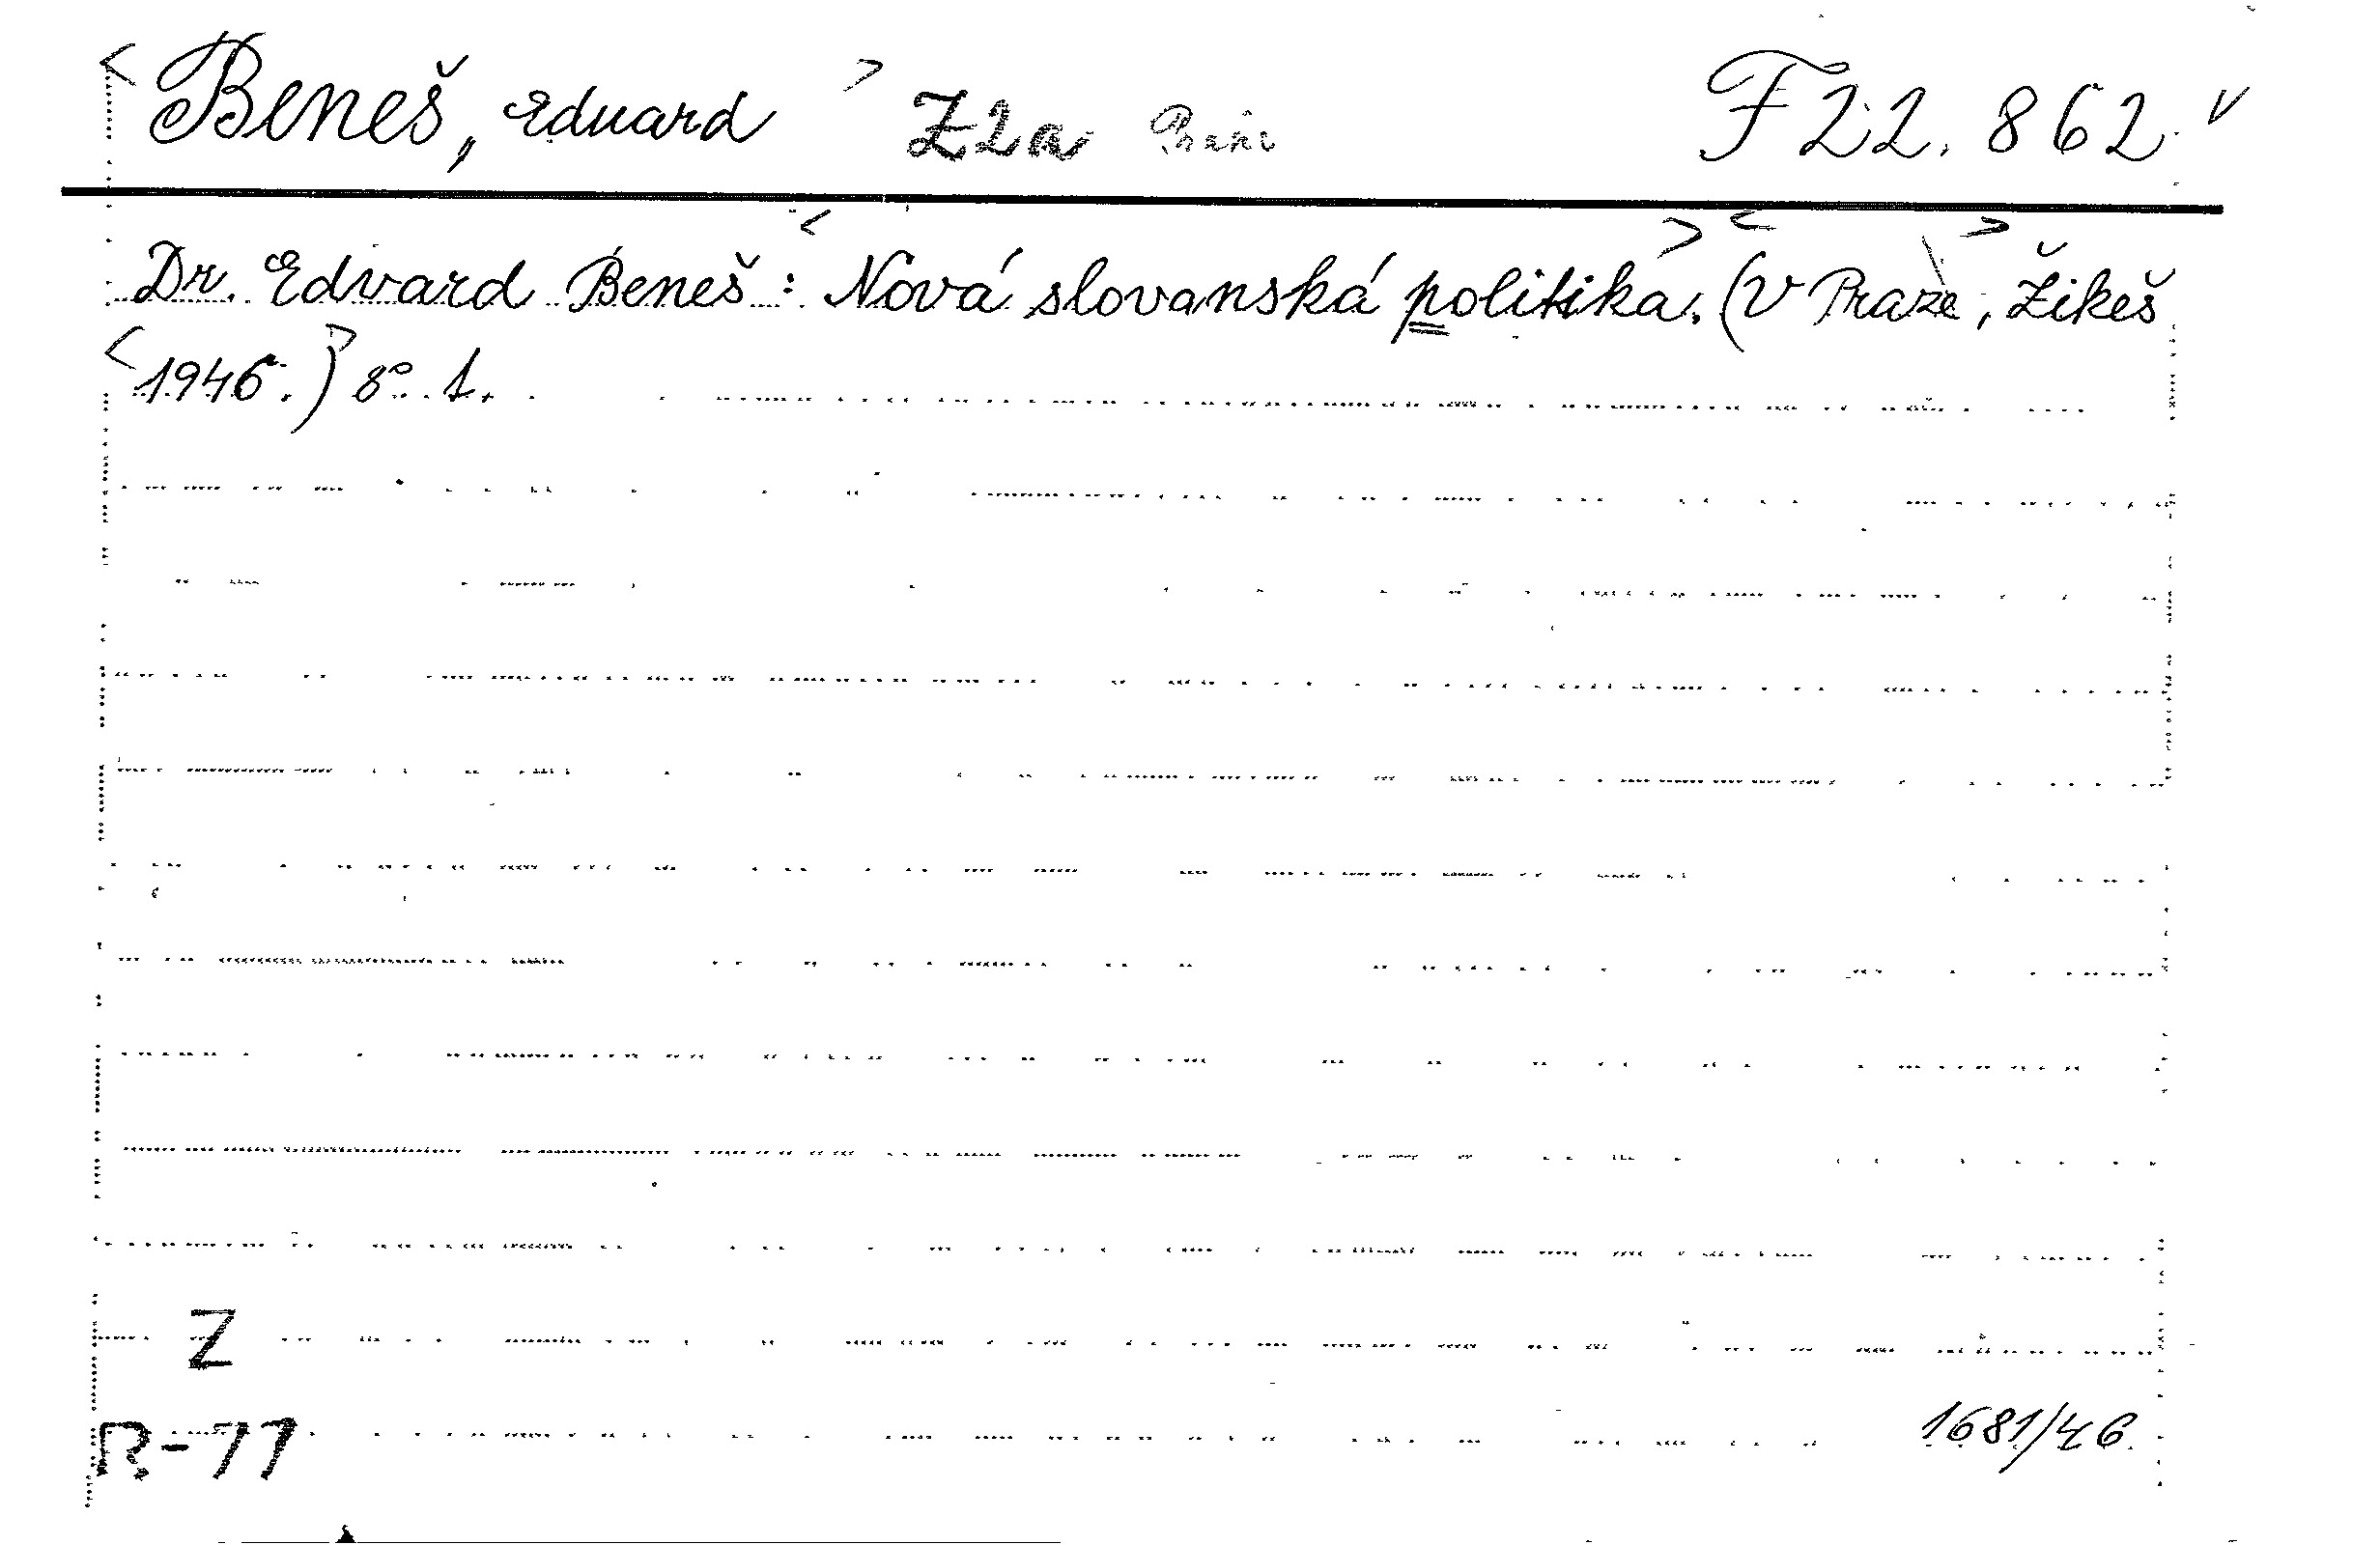 < Beneš, Eduard > Z2a F 22.862 v
Dr. Edvard Beneš: < Nová slovanská politika. > (< V Praze >, Žikeš
< 1946. >) 8° 1.
Z
R-77
1681/46